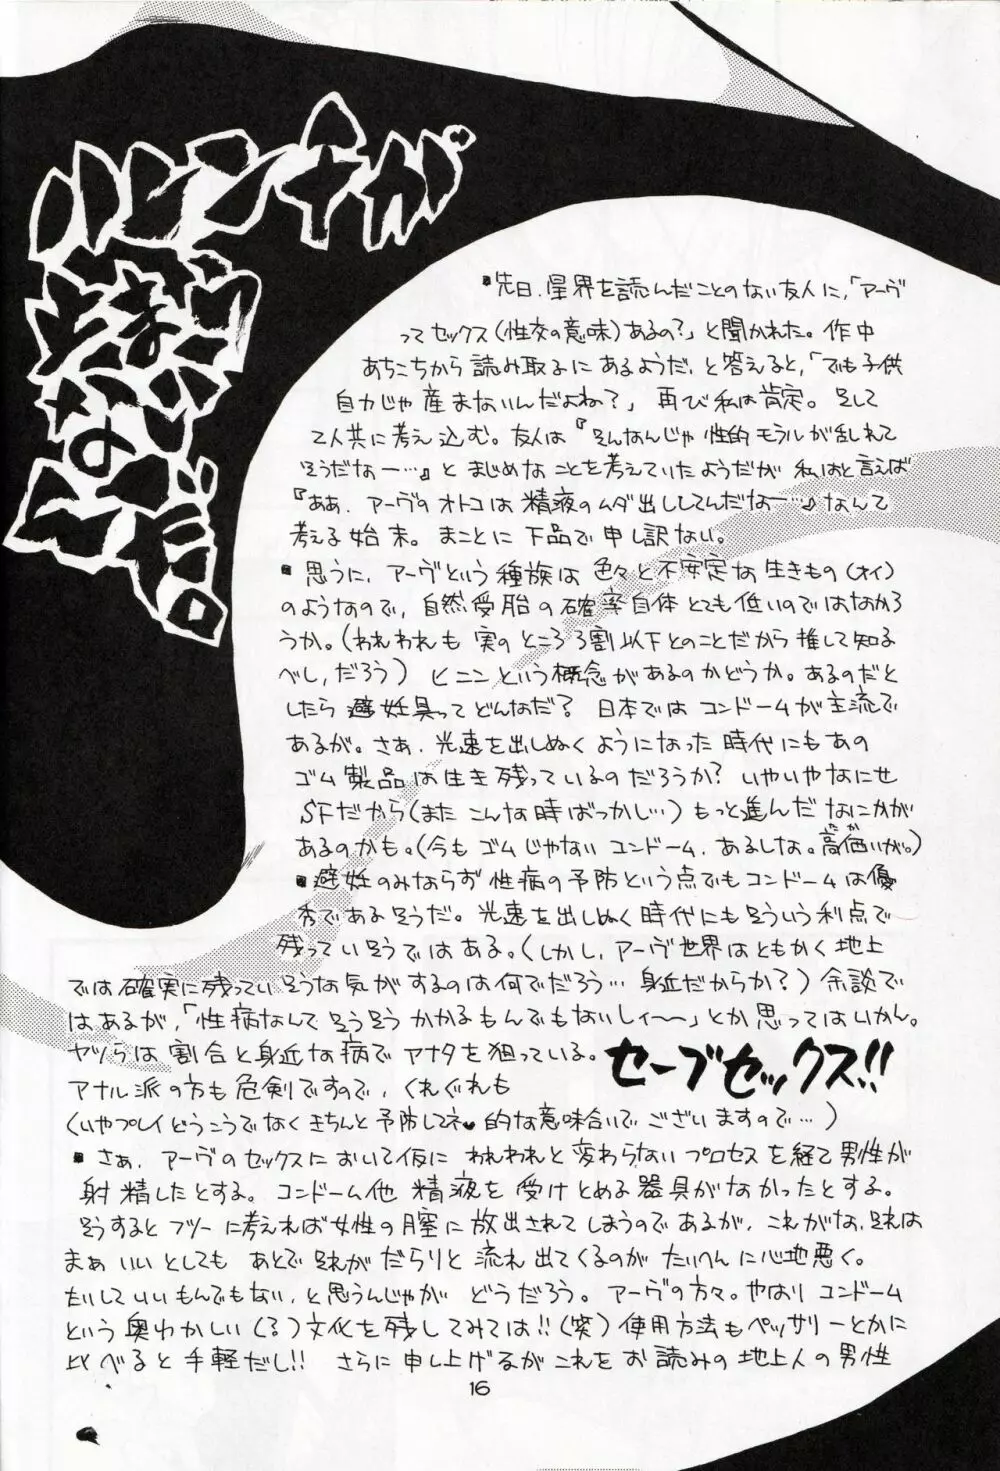 リビドーが
とまら
ない
ゼ。
■先日、星界を読んだことのない友人に、「アーヴ
ってセックス(性交の意味)あるの?」と聞かれた。作中
あちこちから読み取るにあるようだ、と答えると、「でも子供
自力じゃ産まないんだよね?」再び私は肯定。そして
2人共に考え込む。友人は『そんなんじゃ性的モラルが乱れて
そうだなー…』とまじめなことを考えていたようだが私はと言えば
『ああ、アーヴのオトコは精液のムダ出ししてんだなー…』なんて
考える始末。まことに下品で申し訳ない。
■思うに、アーヴという種族は色々と不安定な生きもの(オイ)
のようなので、自然受胎の確率自体とても低いのではなかろ
うか。(われわれも実のところ3割以下とのことだから推して知る
べし、だろう)ヒニンという概念があるのかどうか。あるのだと
したら避妊具ってどんなだ?日本ではコンドームが主流で
あるが。さあ、光速を出しぬくようになった時代にもあの
ゴム製品は生き残っているのだろうか?いやいやなにせ
SFだから(またこんな時ばっかし…)もっと進んだなにかが
あるのかも。(今もゴムじゃないコンドーム、あるしな。高価いが。)
■避妊のみならず性病の予防という点でもコンドームは優
秀であるそうだ。光速を出しぬく時代にもそういう利点で
残っていそうではある。(しかし、アーヴ世界はともかく地上
では確実に残っていそうな気がするのは何でだろう…身近だからか?)余談で
はあるが、「性病なんてそうそうかかるもんでもないしィ〜〜」とか思ってはいかん。
ヤツらは割合と身近な病でアナタを狙っている。セーブセックス!!
アナル派の方も危剣ですので、くれぐれも
(いやプレイどうこうでなくきちんと予防してネ♥的な意味合いでございますので…)
■さあ、アーヴのセックスにおいて仮にわれわれと変わらないプロセスを経て男性が
射精したとする。コンドーム他精液を受けとめる器具がなかったとする。
そうするとフツーに考えれば女性の膣に放出されてしまうのであるが、これがな、それは
まぁいいとしてもあとでそれがだらりと流れ出てくるのがたいへんに心地悪く。
たいしていいもんでもない、と思うんじゃがどうだろう。アーヴの方々。やはりコンドーム
という奥ゆかしい(る)文化を残してみては!!(笑)使用方法もペッサリーとかに
比べると手軽だし!!さらに申し上げるがこれをお読みの地上人の男性
16